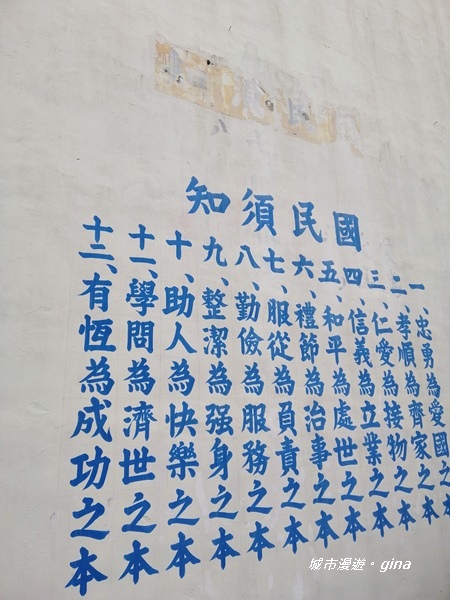 國民須知
一、忠勇為愛國之本
二、孝順為齊家之本
三、仁愛為接物之本
四、信義為立業之本
五、和平為處世之本
六、禮節為治事之本
七、服從為負責之本
八、勤儉為服務之本
九、整潔為强身之本
十、助人為快樂之本
十一、學問為濟世之本
十二、有恆為成功之本
城市漫遊。gina